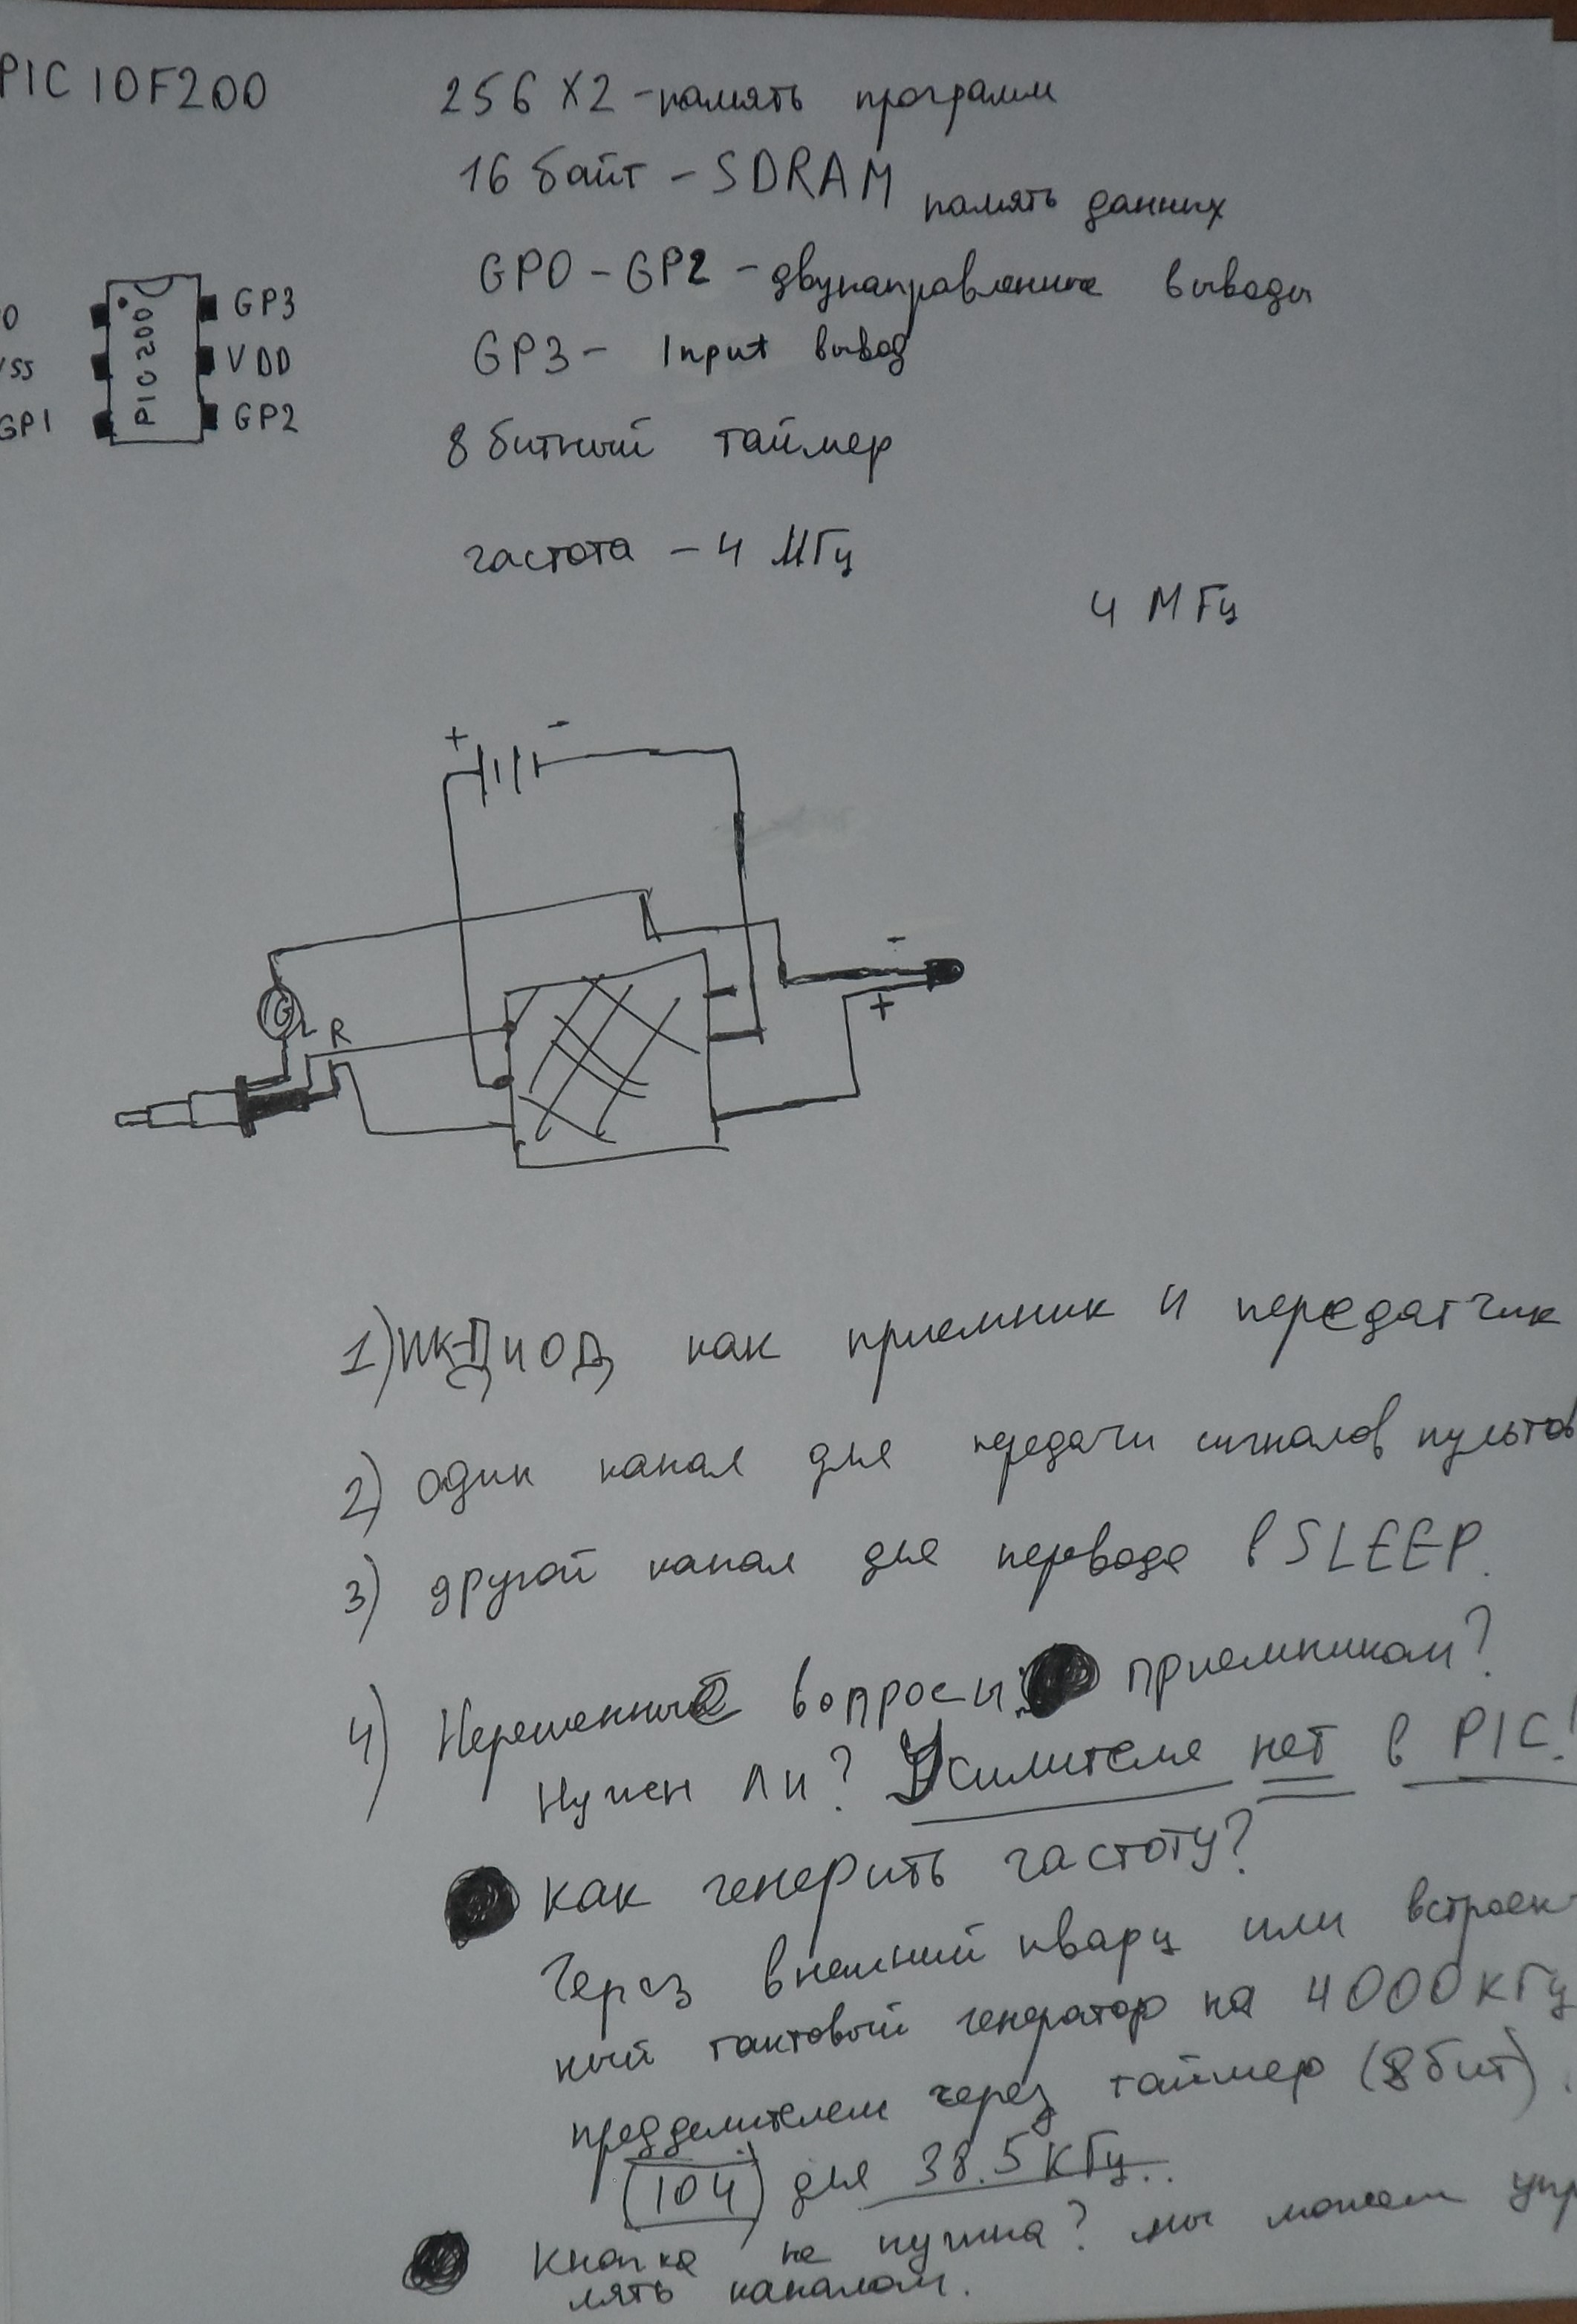 PIC 10F200
256 X2 - память программ
16 байт - SDRAM память данных
GP0 - GP2 - двунаправленные выводы
GP3 - Input вывод
8 битный таймер
частота - 4 МГц
4 МГц
0
VSS
GP1
PIC 200
GP3
VDD
GP2
+ -
-
+
G
L R
1) ИК-Диод как приемник и передатчик
2) один канал для передачи сигналов пультов
3) другой канал для перевода в SLEEP.
4) Нерешенные вопросы: приемником?
Нужен ли? Усилителя нет в PIC!
как генерить частоту?
Через внешний кварц или встроен-
ный тактовый генератор на 4000 кГц
предделителем через таймер (8 бит).
(104) для 38.5 кГц..
Кнопка не нужна? мы можем упр
лять каналом.